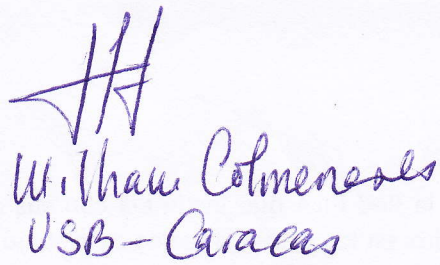 William Colmenares
USB - Caracas